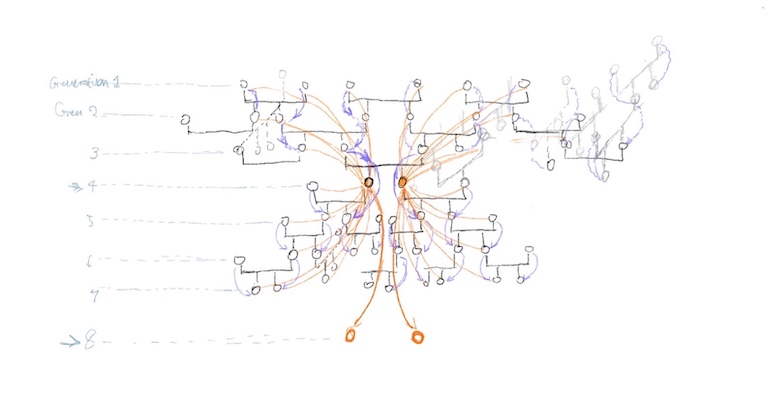 Generation 1
Gen 2
3
4
5
6
7
8